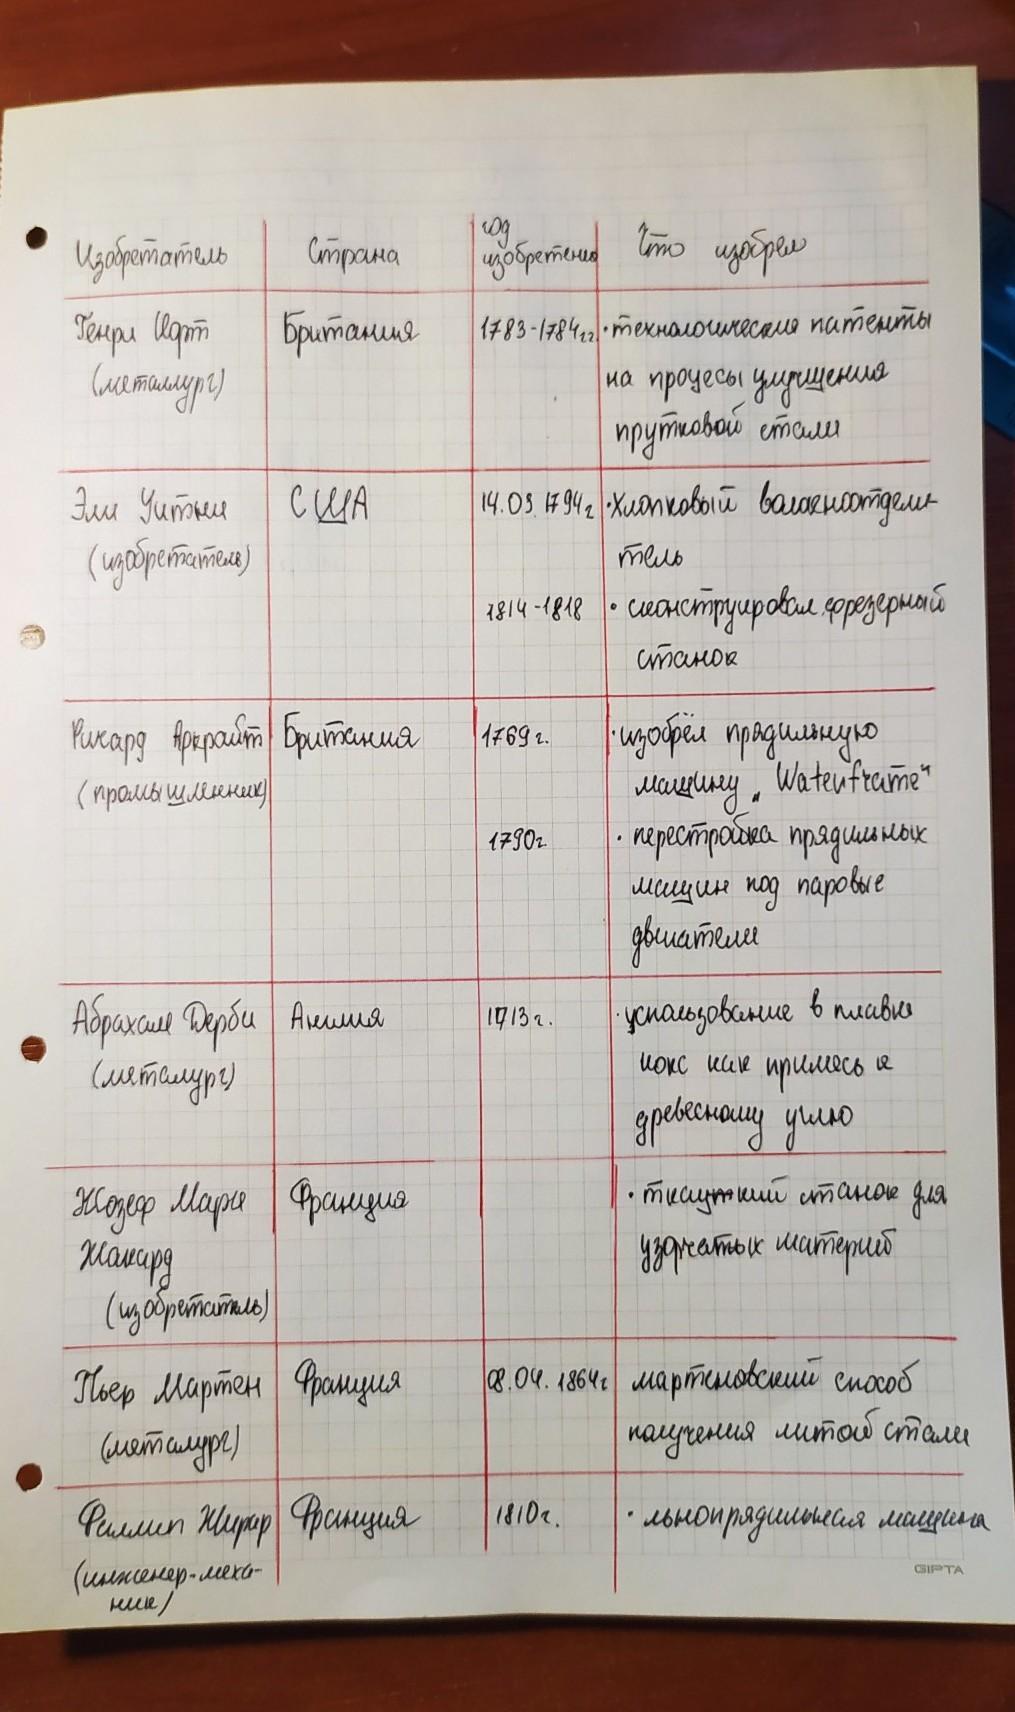 Изобретатель Страна год изобретения Что изобрел
Генри Корт Британия 1783-1784гг. • технологические патенты
(металлург) на процесы улучшения
прутковой стали
Эли Уитни США 14.03.1794г • Хлопковый волокноотдели-
(изобретатель) тель
1814-1818 • сконструировал фрезерный
станок
Рикард Аркрайт Британия 1769г. • изобрёл прядильную
(промышленник) машину „Waterframe“
1790г • перестройка прядильных
машин под паровые
двигатели
Абрахам Дерби Англия 1713г. • использование в плавке
(металург) кокс как примесь к
древесному углю
Жозеф Мари Франция • ткацкий станок для
Жакард узорчатых материй
(изобретатель)
Пьер Мартен Франция 08.04.1864г мартеновский способ
(металург) получения литой стали
Филлип Жирар Франция 1810г. • льнопрядильная машина
(инженер-меха-
ник)
GIPTA